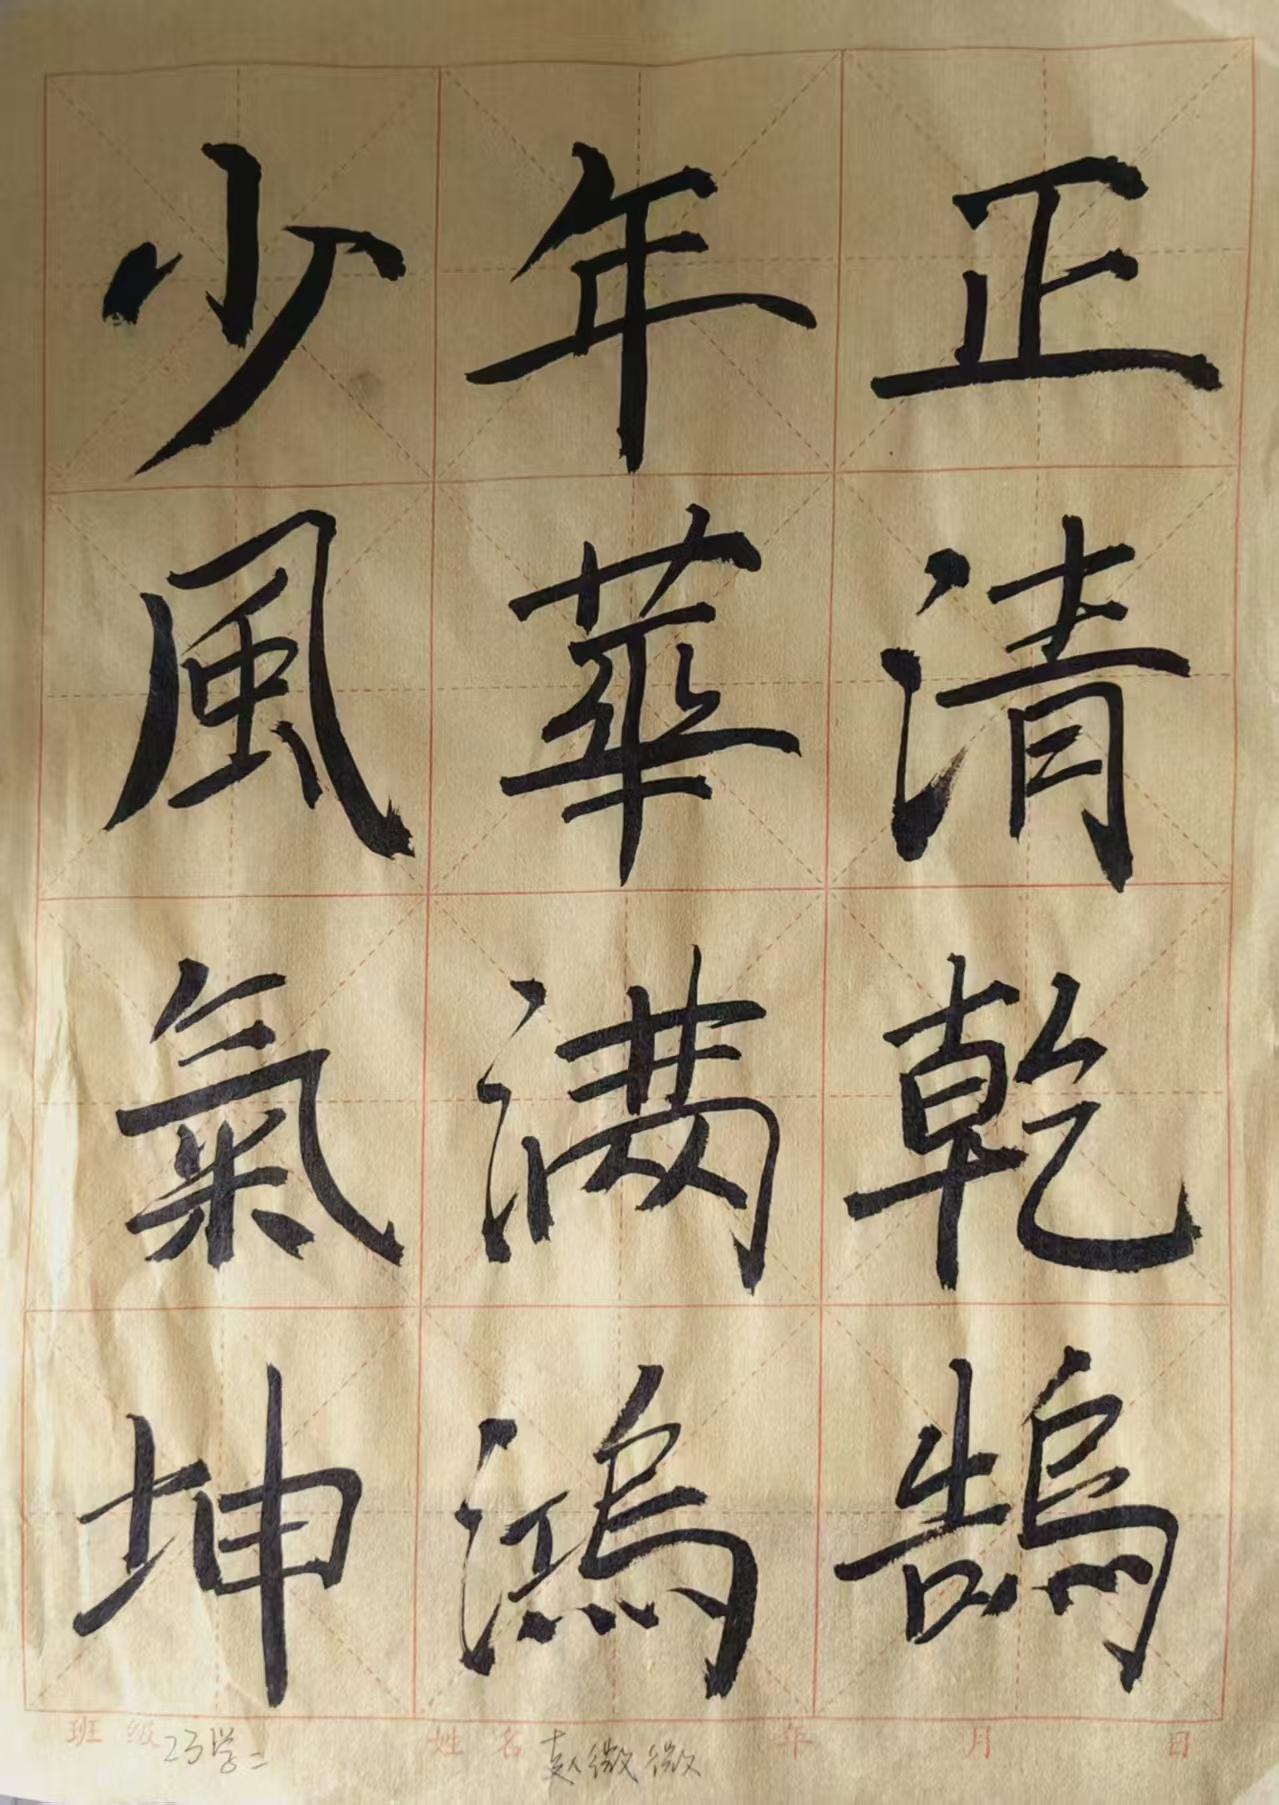 少年正
風華清
氣满乾
坤鴻鵠
班级 23学二 姓名 赵微微 年 月 日